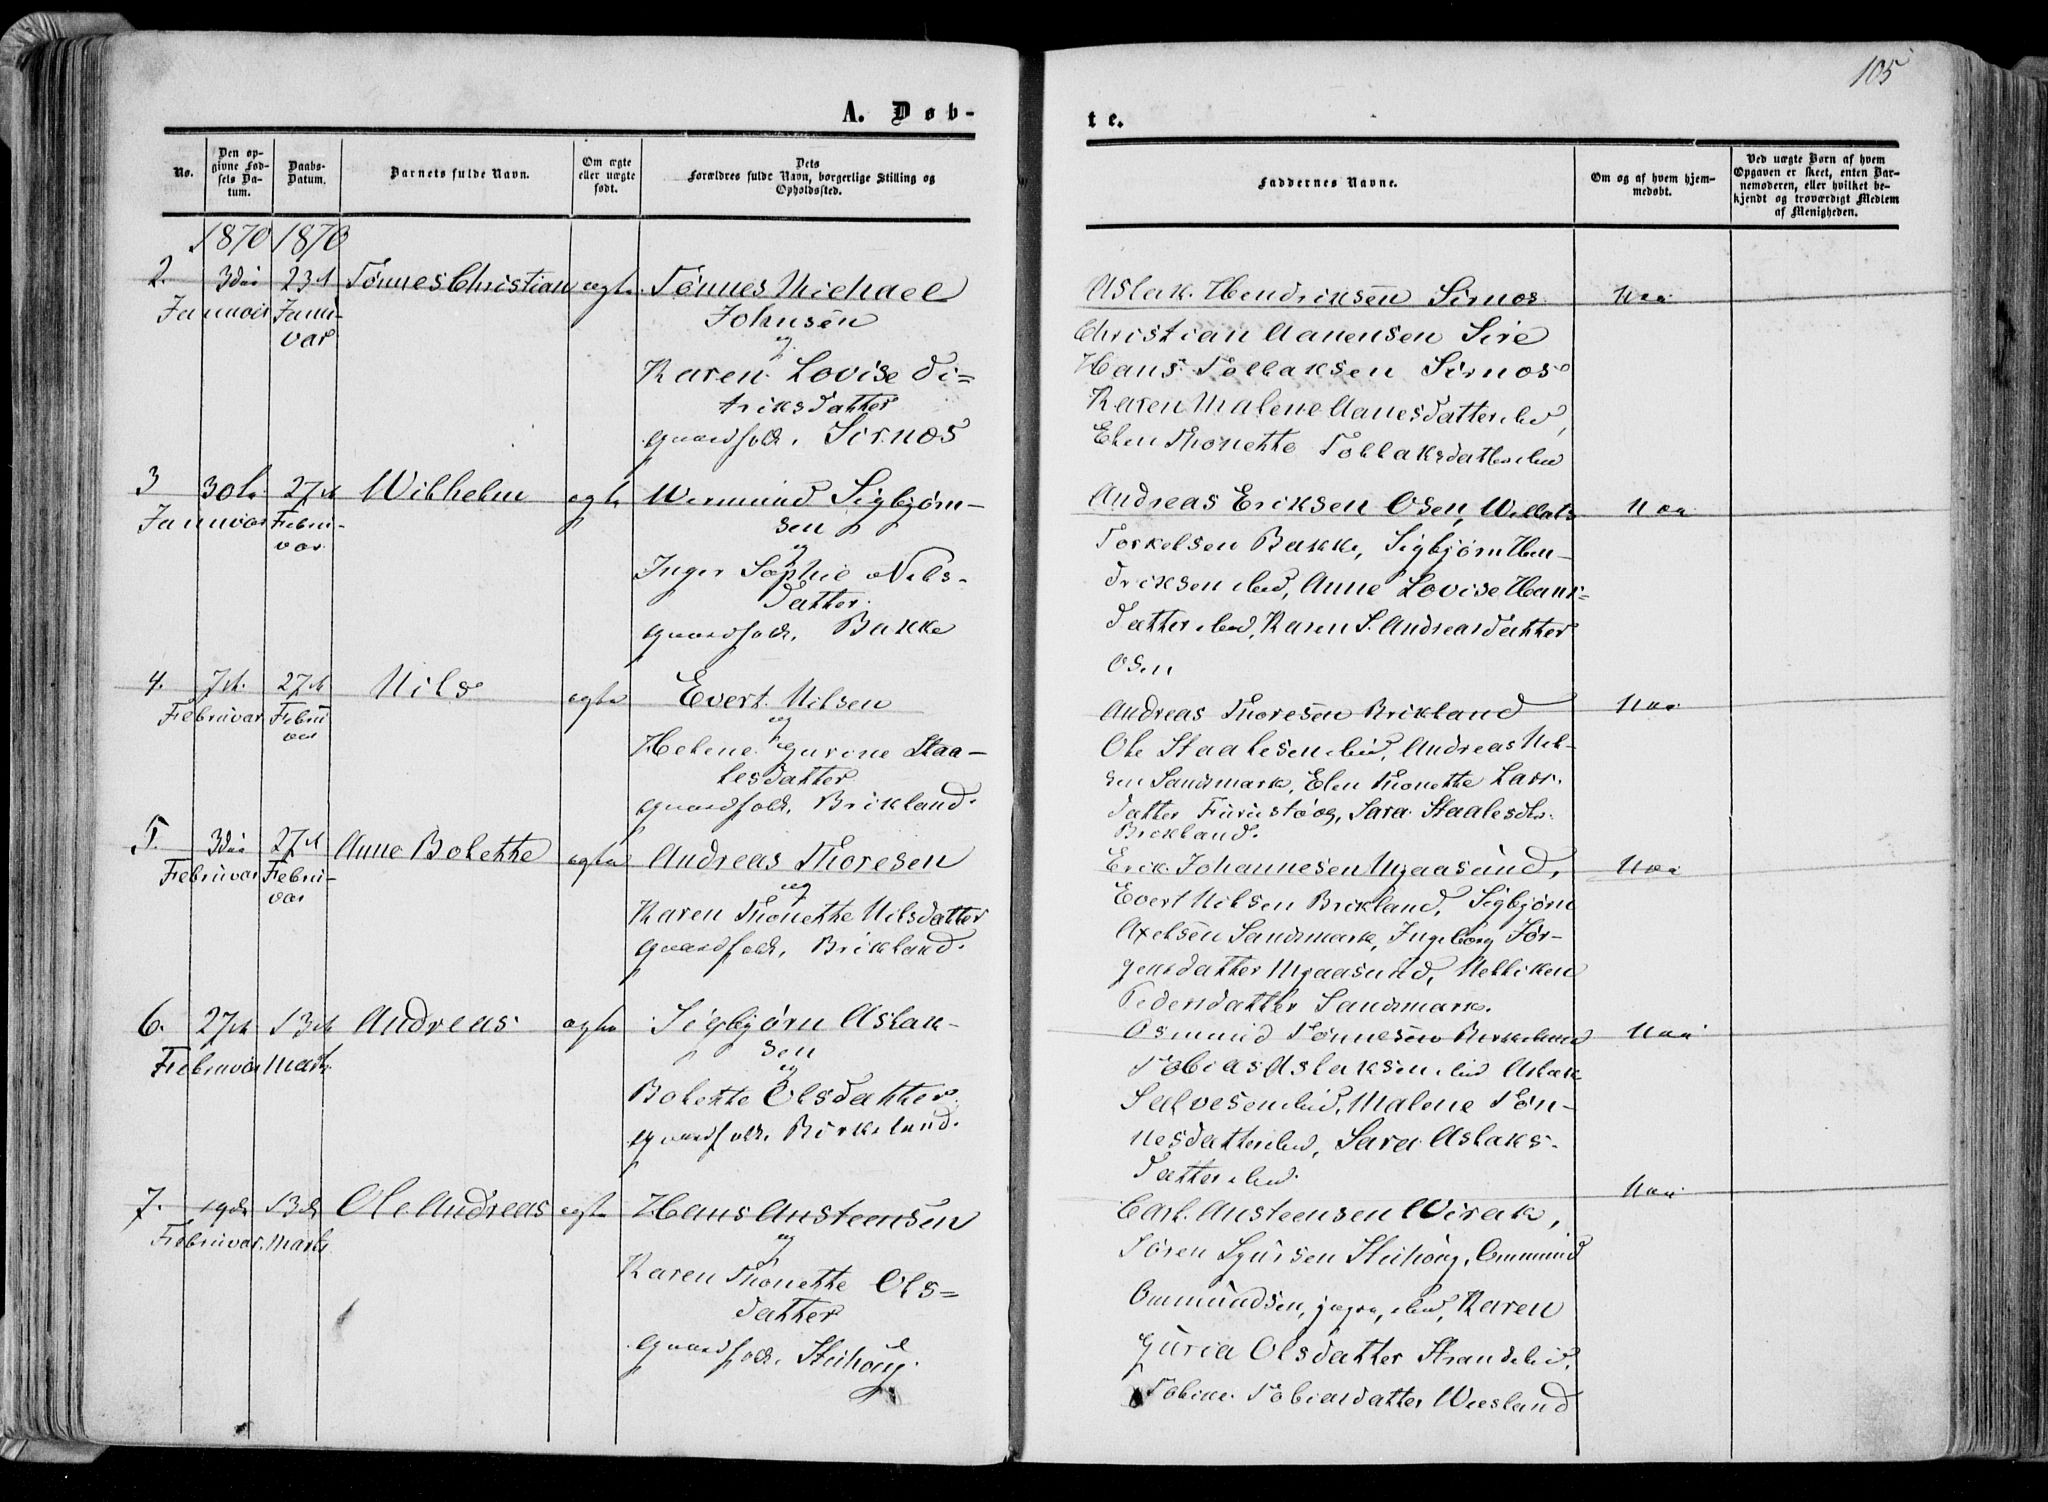 105
A. Døb-
te.
No.
Den op-
givne Fød-
sels Da-
tum.
Daabs-
Datum.
Barnets fulde Navn.
Om ægte
eller uægte
født.
Dets
Forældres fulde Navn, borgerlige Stilling og
Opholdssted.
Faddernes Navne.
Om og af hvem hjem-
medøbt.
Ved uægte Børn af hvem
Opgaven er skeet, enten Bar-
nemoderen, eller hvilket be-
kjendt og troværdigt Medlem
af Menigheden.
1870 1870
2. 3die 23d Tønnes Christian ægte Tønnes Michael
Januar Janu-
var
Johnsen
og
Karen Lovise Di-
triksdatter
gaardfolk, Sirnos
Aslak Hendriksen Sirnos
Christian Aanensen Sire
Hans Tollaksen Sirnos
Karen Malene Aanesdatter ibid,
Elen Thonette Tollaksdatter ibid
3 30te 27d Wilhelm ægte Wermund Sigbjørn-
Januvar Febru-
var
sen
og
Inger Sophie Nils-
datter
gaardfolk, Bakke
Andreas Eriksen Osen,
Torkelsen Bakke, Sigbjørn Hen-
driksen ibid, Anne Lovise Hans-
datter ibid, Karen S. Andreasdatter
Osen
4. 7d. 27d Nils ægte Evert Nilsen
Februvar Febru
var
og
Helene Gurine Staa-
lesdatter
gaardfolk, Brikland.
Andreas Thoresen Brikland
Ole Staalesen ibid, Andreas Nil-
sen Sandsmark, Elen Thonette Lars-
datter Sara Staalesdtr.
Brikland.
5. 3die 27d Anne Bolette ægte Andreas Thoresen
Februvar Febru-
var
og
Karen Thonette Nilsdatter
gaardfolk, Brikland.
Erik Johannesen Mgaasund,
Evert Nilsen Brikland, Sigbjørn
Axelsen Sandsmark, Ingeborg Jør-
gensdatter Mgaasund, Nelliken
Pedersdatter Sandsmark.
6. 27d 13d Andreas ægte Sigbjørn Aslak-
Februvar Marts
sen
og
Bolette Olsdatter
gaardfolk, Birkeland.
Osmund Tønnesen Birkeland
Tobias Aslaksen ibid Aslak
Salvesen ibid, Malene Tøn-
nesdatter ibid, Sara Aslaks-
datter ibid.
7. 19d 13d Ole Andreas ægte Hans Ansteensen
Februvar. Marts
og
Karen Thonette Ols-
datter
gaardfolk,
Carl Ansteensen Wirak,
Søren Sjursen Ommund
Ommundsen, ibid, Karen
Guria Olsdatter
Tobine Tobiasdatter
Nei
Nei
Nei
Nei
Nei
Nei